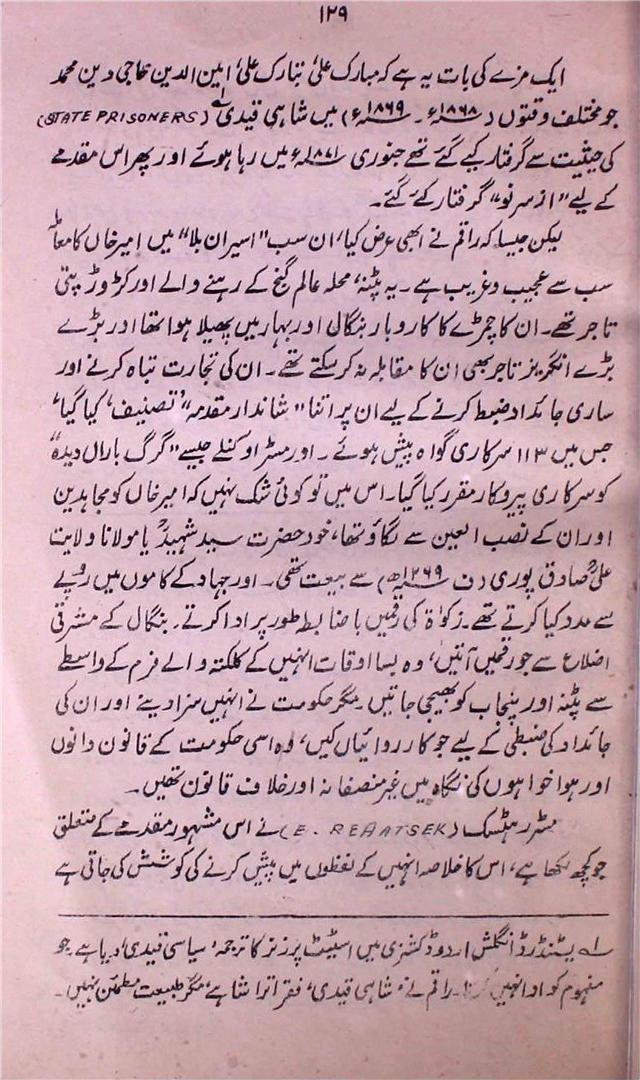 ۱۲۹
ایک مزے کی بات یہ ہے کہ مبارک علی، تبارک علی، امین الدین، حاجی دین محمد
جو مختلف وقتوں (۱۸۶۸ء - ۱۸۶۹ء) میں شاہی قیدی لہ (STATE PRISONERS)
کی حیثیت سے گرفتار کیے گئے تھے جنوری ۱۸۷۱ء میں رہا ہوئے اور پھر اس مقدمے
کے لیے "از سرِ نو" گرفتار کئے گئے۔
لیکن جیسا کہ راقم نے ابھی عرض کیا، ان سب "اسیران بلا" میں امیر خاں کا معاملہ
سب سے عجیب و غریب ہے۔ یہ پٹنہ، محلہ عالم گنج کے رہنے والے اور کڑوڑ پتی
تاجر تھے۔ ان کا چمڑے کا کاروبار بنگال اور بہار میں پھیلا ہوا تھا اور بڑے
بڑے انگریز تاجر بھی ان کا مقابلہ نہ کر سکتے تھے۔ ان کی تجارت تباہ کرنے اور
ساری جائداد ضبط کرنے کے لیے ان پر اتنا "شاندار مقدمہ" "تصنیف" کیا گیا،
جس میں ۱۱۳ سرکاری گواہ پیش ہوئے۔ اور مسٹر اوکنلے جیسے "گرگ باراں دیدہ"
کو سرکاری پیروکار مقرر کیا گیا۔ اس میں تو کوئی شک نہیں کہ امیر خاں کو مجاہدین
اور ان کے نصب العین سے لگاؤ تھا، خود حضرت سید شہیدؒ یا مولانا ولایت
علیؒ صادق پوری (ف ۱۲۶۹ھ) سے بیعت تھی۔ اور جہاد کے کاموں میں روپے
سے مدد کیا کرتے تھے۔ زکوٰۃ کی رقمیں باضابطہ طور پر ادا کرتے۔ بنگال کے مشرقی
اضلاع سے جو رقمیں آتیں، وہ بسا اوقات انہیں کے کلکتہ والے فرم کے واسطے
سے پٹنہ اور پنجاب کو بھیجی جاتیں مگر حکومت نے انہیں سزا دینے اور ان کی
جائداد کی ضبطی کے لیے جو کارروائیاں کیں، وہ اسی حکومت کے قانون دانوں
اور ہوا خواہوں کی نگاہ میں غیر منصفانہ اور خلاف قانون تھیں۔
مسٹر رہٹسک (E. REHATSEK) نے اس مشہور مقدمے کے متعلق
جو کچھ لکھا ہے، اس کا خلاصہ انہیں کے لفظوں میں پیش کرنے کی کوشش کی جاتی ہے
لہ سٹنڈرڈ انگلش اردو ڈکشنری میں اسٹیٹ پرزنر کا ترجمہ 'سیاسی قیدی' دیا ہے جو
مفہوم کو ادا نہیں کرتا۔ راقم نے 'شاہی قیدی' فقرا تراشا ہے، مگر طبیعت مطمئن نہیں۔